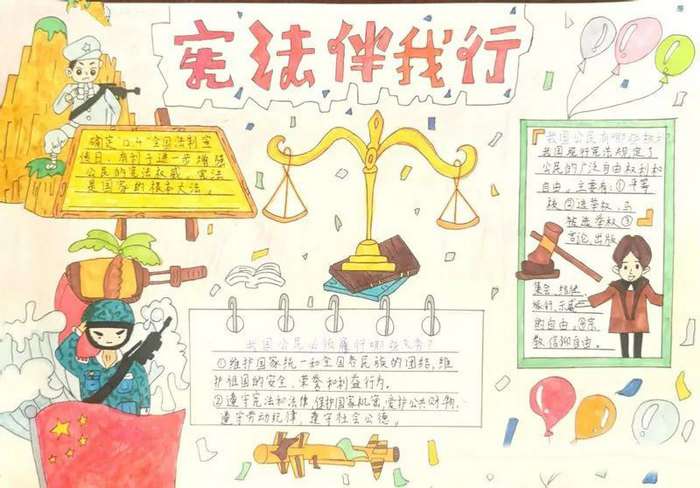 宪法伴我行
确定"12.4"全国法制宣
传日,有利于进一步增强
公民的宪法权威。宪法
是国家的根本大法。
我国公民有哪些权利?
我国现行宪法规定了
公民的广泛自由权利和
自由,主要有:①平等
权 ②选举权 和
被选举权 ③
言论、出版
集会、结社、
旅行、示威
的自由。④宗
教信仰自由。
我国公民必须履行哪些义务?
①维护国家统一和全国各民族的团结,维
护祖国的安全、荣誉和利益行为。
②遵守宪法和法律,保护国家机密,爱护公共财物、
遵守劳动纪律,遵守社会公德。